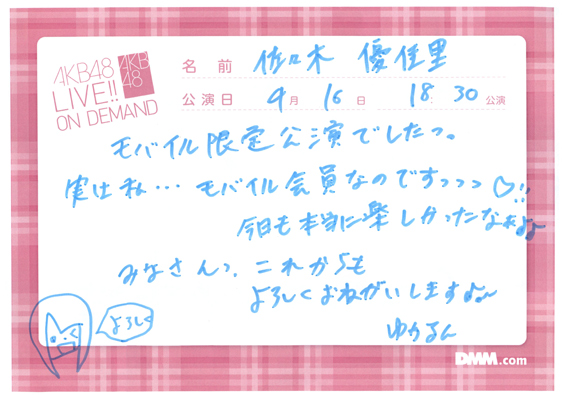 AKB48
LIVE!!
ON DEMAND
AKB
48
名前 佐々木 優佳里
公演日 4月 16日 18:30公演
モバイル限定公演でしたっ。
実は私… モバイル会員なのですっっっ♡!!
今日も本当に楽しかったなぁ♪♪
みなさんっ、これからも
よろしくおねがいします♪
ゆかるん
よろしく
DMM.com